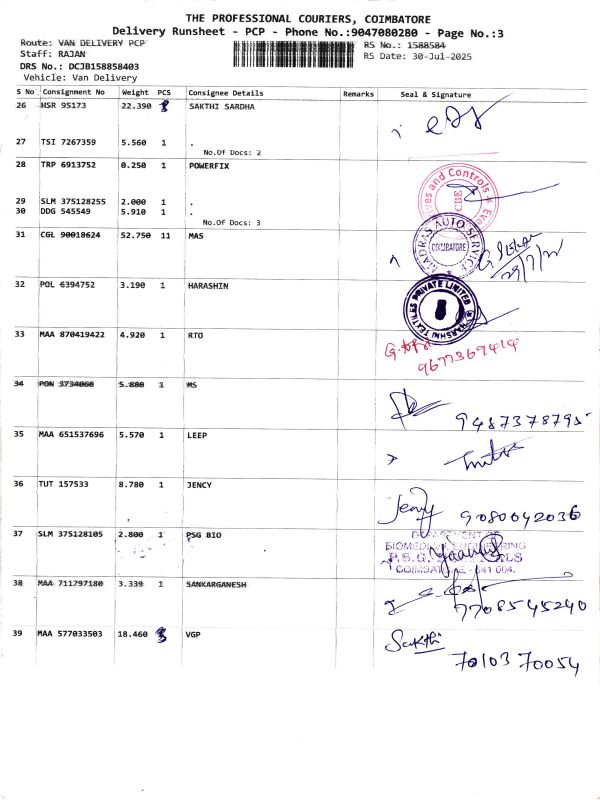 THE PROFESSIONAL COURIERS, COIMBATORE
Delivery Runsheet - PCP - Phone No.:9047080280 - Page No.:3
Route: VAN DELIVERY PCP
RS No.: 1588584
Staff: RAJAN
RS Date: 30-Jul-2025
DRS No.: DCJB158858403
Vehicle: Van Delivery
S No Consignment No Weight PCS Consignee Details Remarks Seal & Signature
26 HSR 95173 22.390 SAKTHI SARDHA
27 TSI 7267359 5.560 1 .
No.Of Docs: 2
28 TRP 6913752 0.250 1 POWERFIX
ves and Controls
CBE
29 SLM 375128255 2.000 1 .
30 DDG 545549 5.910 1 .
No.Of Docs: 3
31 CGL 90018624 52.750 11 MAS
MADRAS AUTO SERVICE
COIMBATORE
32 POL 6394752 3.190 1 HARASHIN
HARSHNI TEXTILES PRIVATE LIMITED
33 MAA 870419422 4.920 1 RTO
9677369414
34 PON 3734060 5.880 1 MS
9487378795
35 MAA 651537696 5.570 1 LEEP
36 TUT 157533 8.780 1 JENCY
Jency 9080042036
37 SLM 375128105 2.800 1 PSG BIO
DEPARTMENT OF
BIOMEDICAL ENGINEERING
P.S.G.
COIMBATORE - 641 004.
38 MAA 711797180 3.339 1 SANKARGANESH
7708545240
39 MAA 577033503 18.460 VGP
Sakthi
7010370054